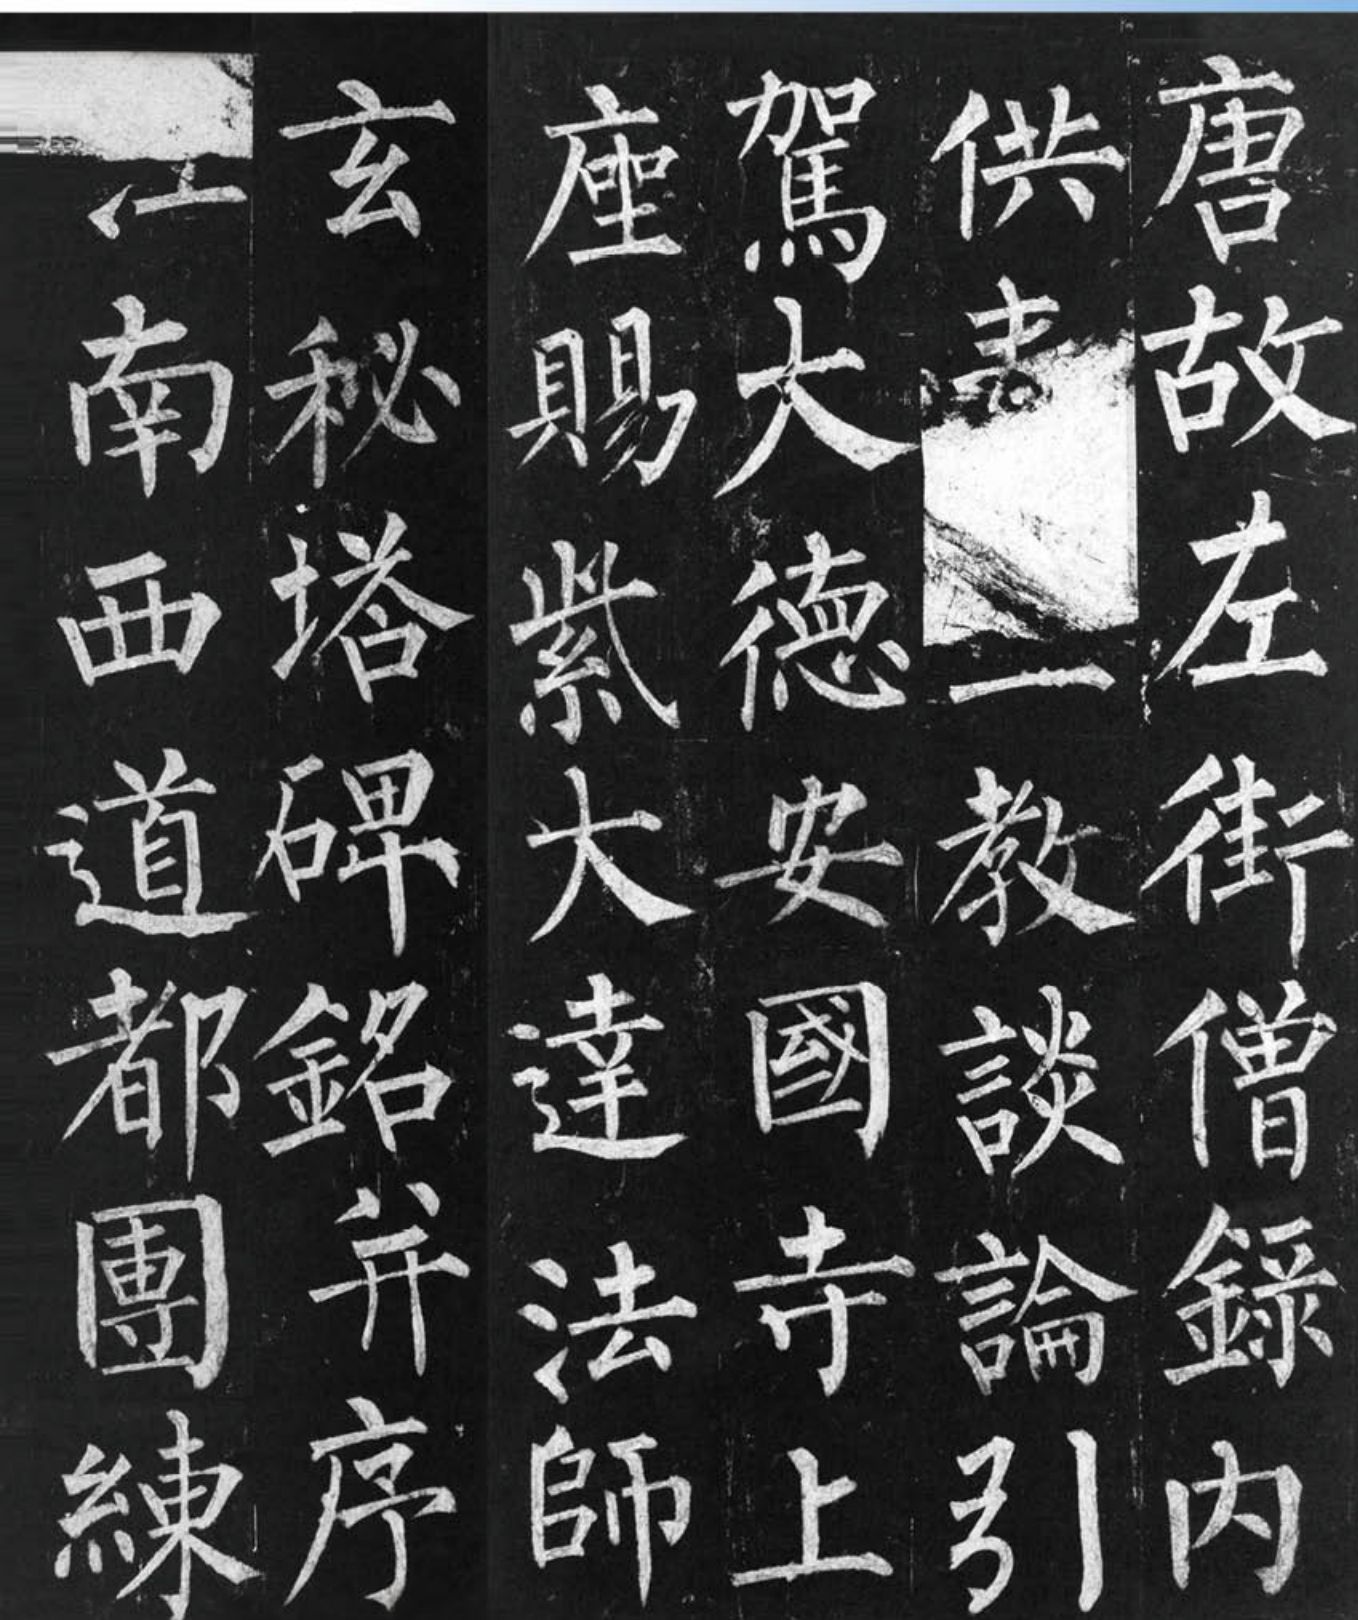 唐故左街僧錄内
供一教談論引
駕大德安國寺上
座賜紫大達法師
玄秘塔碑銘并序
南西道都團練